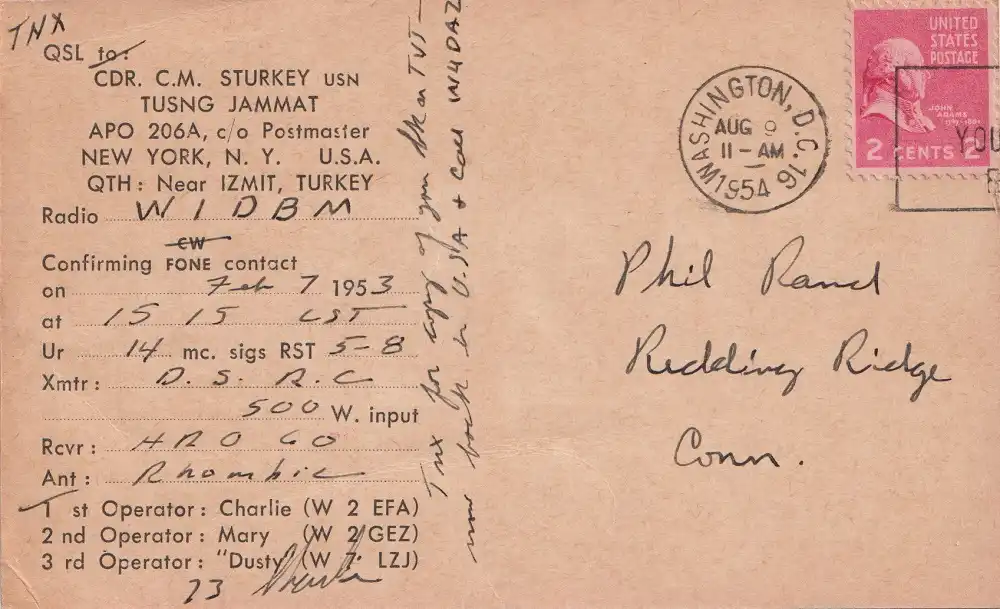 TNX
QSL to:
CDR. C.M. STURKEY USN
TUSNG JAMMAT
APO 206A, c/o Postmaster
NEW YORK, N. Y. U.S.A.
QTH: Near IZMIT, TURKEY
Radio W1DBM
CW
Confirming FONE contact
on Feb 7 1953
at 1515 LST
Ur 14 mc. sigs RST 5-8
Xmtr: D.S.R.C
500 W. input
Rcvr: HRO 60
Ant: Rhombic
1 st Operator: Charlie (W 2 EFA)
2 nd Operator: Mary (W 2 GEZ)
3 rd Operator: "Dusty (W 7 LZJ)
73 Charlie
Tnx for copy of your TVI-
now back in USA + call W4DAZ
WASHINGTON, D.C. 16
AUG 9
11-AM
1954
UNITED
STATES
POSTAGE
JOHN
ADAMS
2 CENTS 2
YOU
Phil Rand
Redding Ridge
Conn.